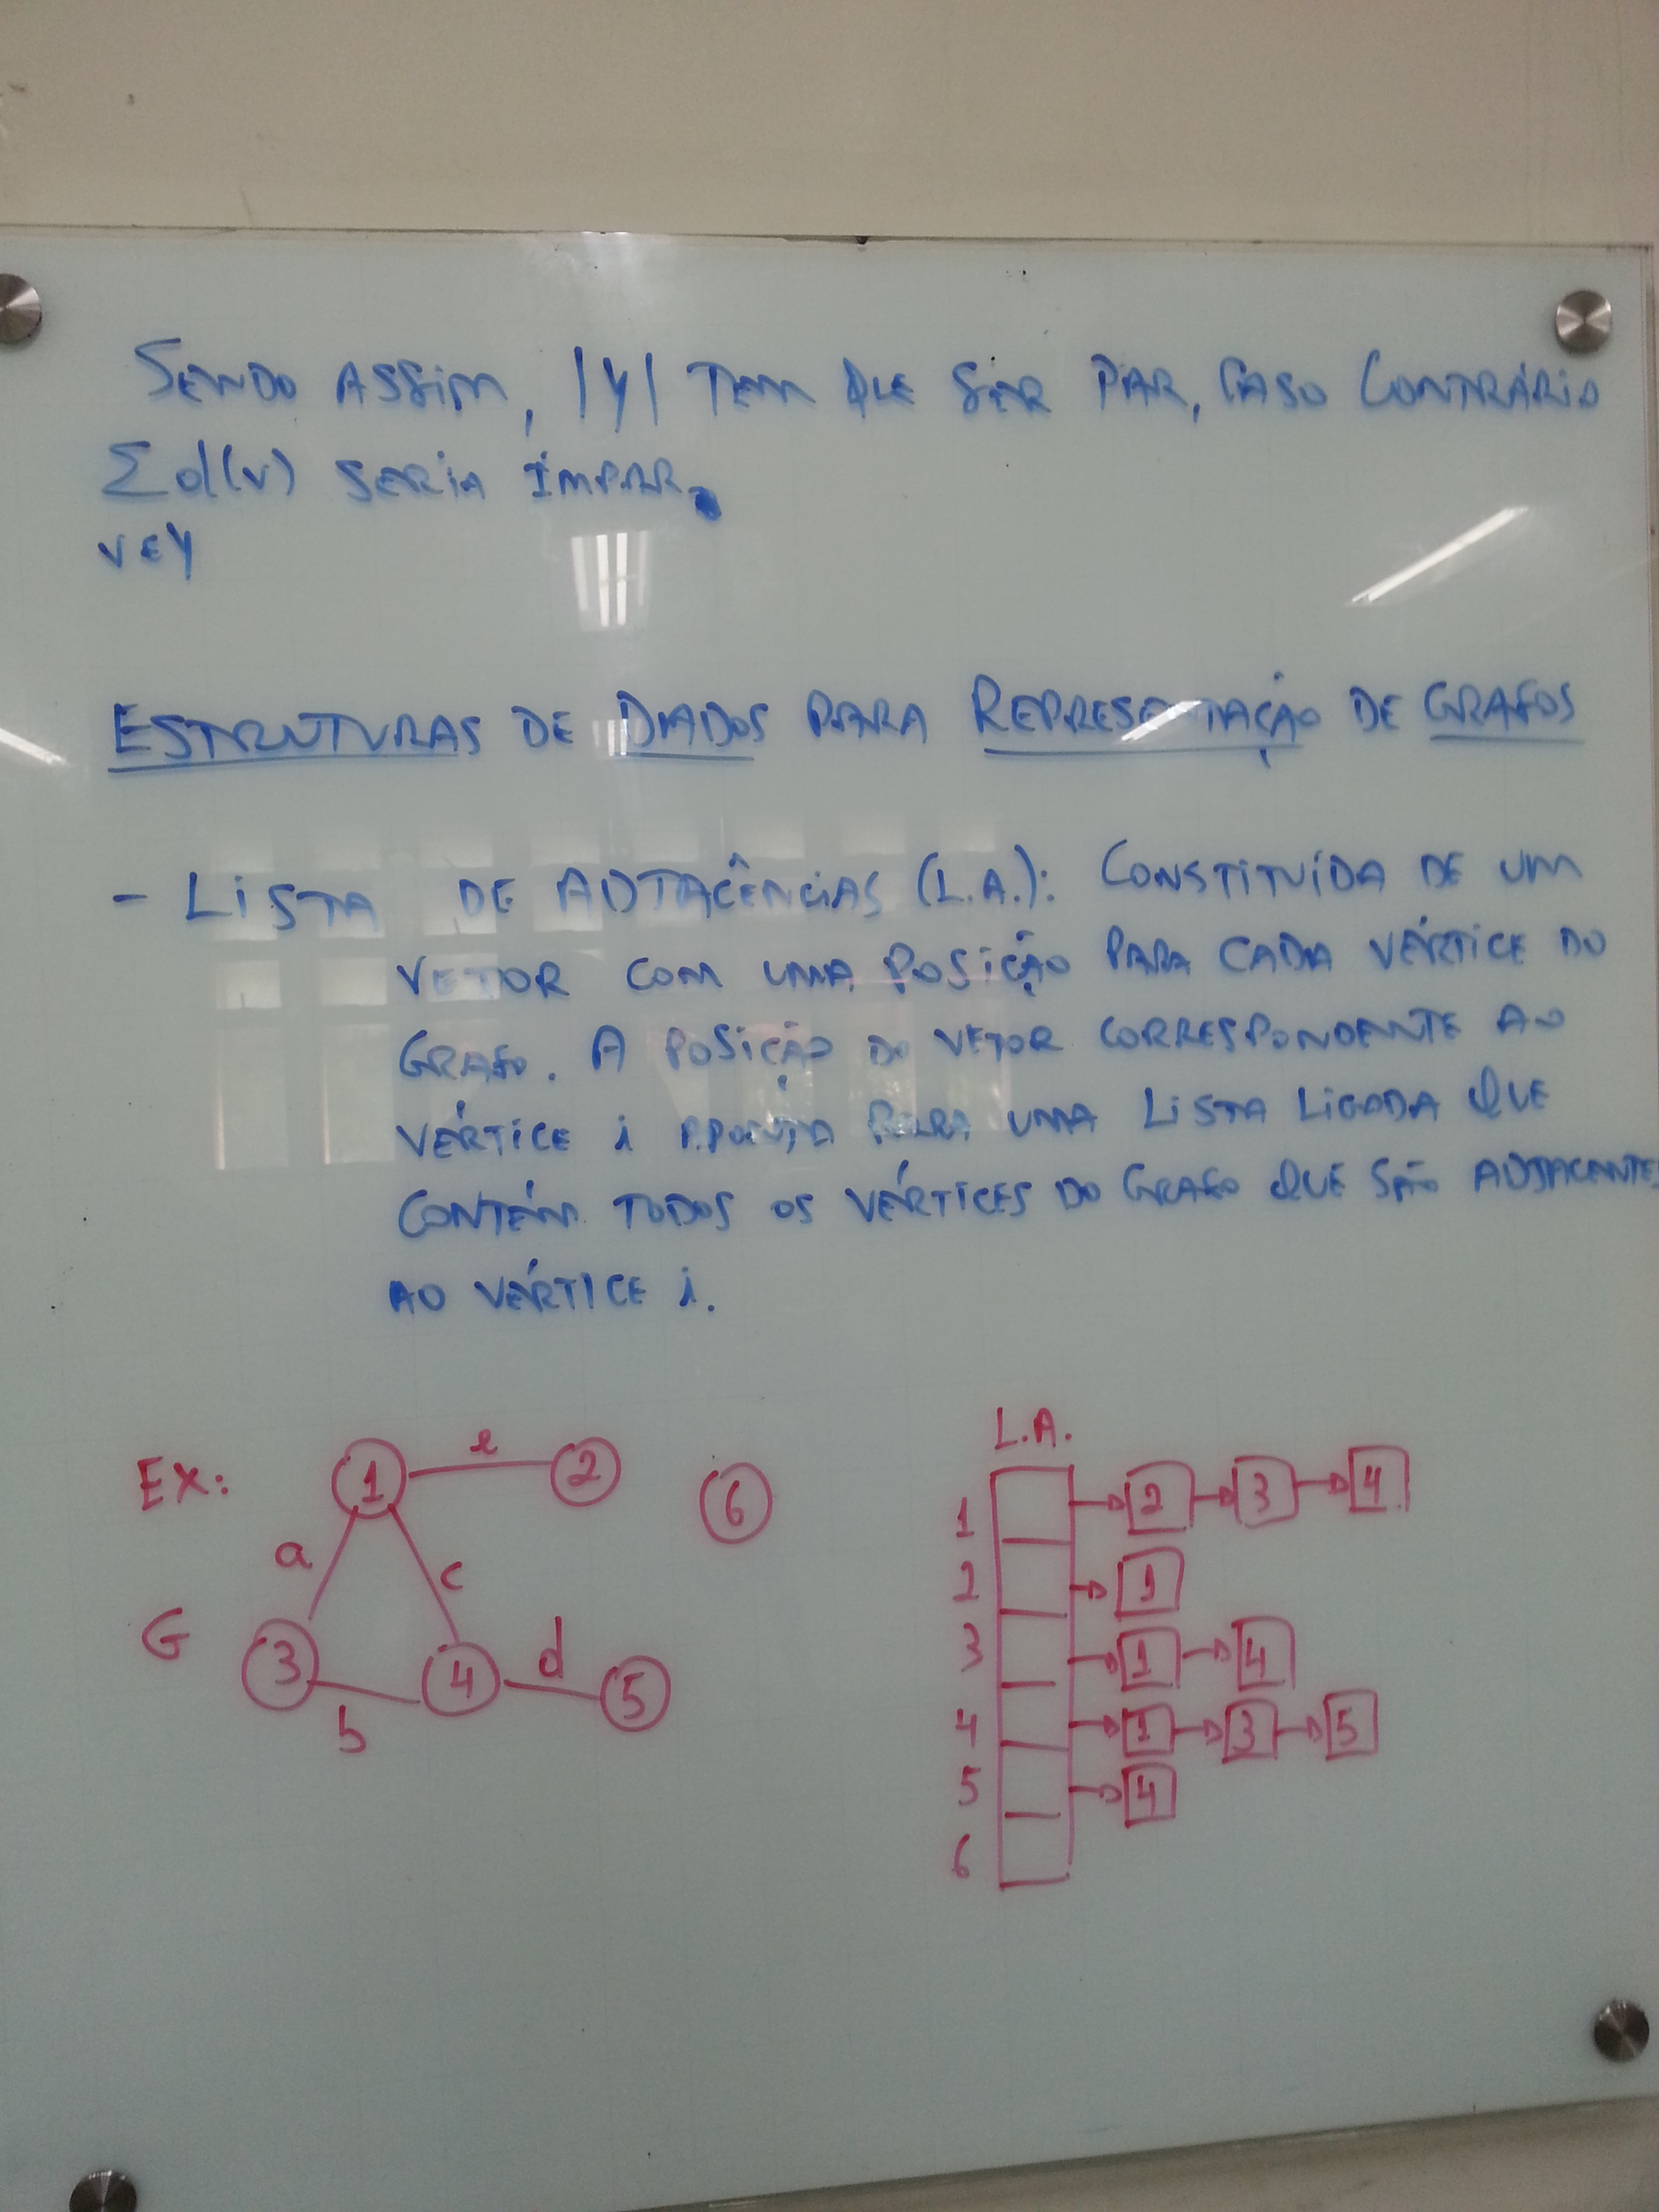 SENDO ASSIM, |Y| TEM QUE SER PAR, CASO CONTRÁRIO
Σd(v) SERIA ÍMPAR.
v∈Y
ESTRUTURAS DE DADOS PARA REPRESENTAÇÃO DE GRAFOS
- LISTA DE ADJACÊNCIAS (L.A.): CONSTITUÍDA DE UM
VETOR COM UMA POSIÇÃO PARA CADA VÉRTICE DO
GRAFO. A POSIÇÃO DO VETOR CORRESPONDENTE AO
VÉRTICE i APONTA PARA UMA LISTA LIGADA QUE
CONTÉM TODOS OS VÉRTICES DO GRAFO QUE SÃO ADJACENTES
AO VÉRTICE i.
EX:
G
1 e 2 6
a c
3 b 4 d 5
L.A.
1 → 2 → 3 → 4
2 → 1
3 → 1 → 4
4 → 1 → 3 → 5
5 → 4
6